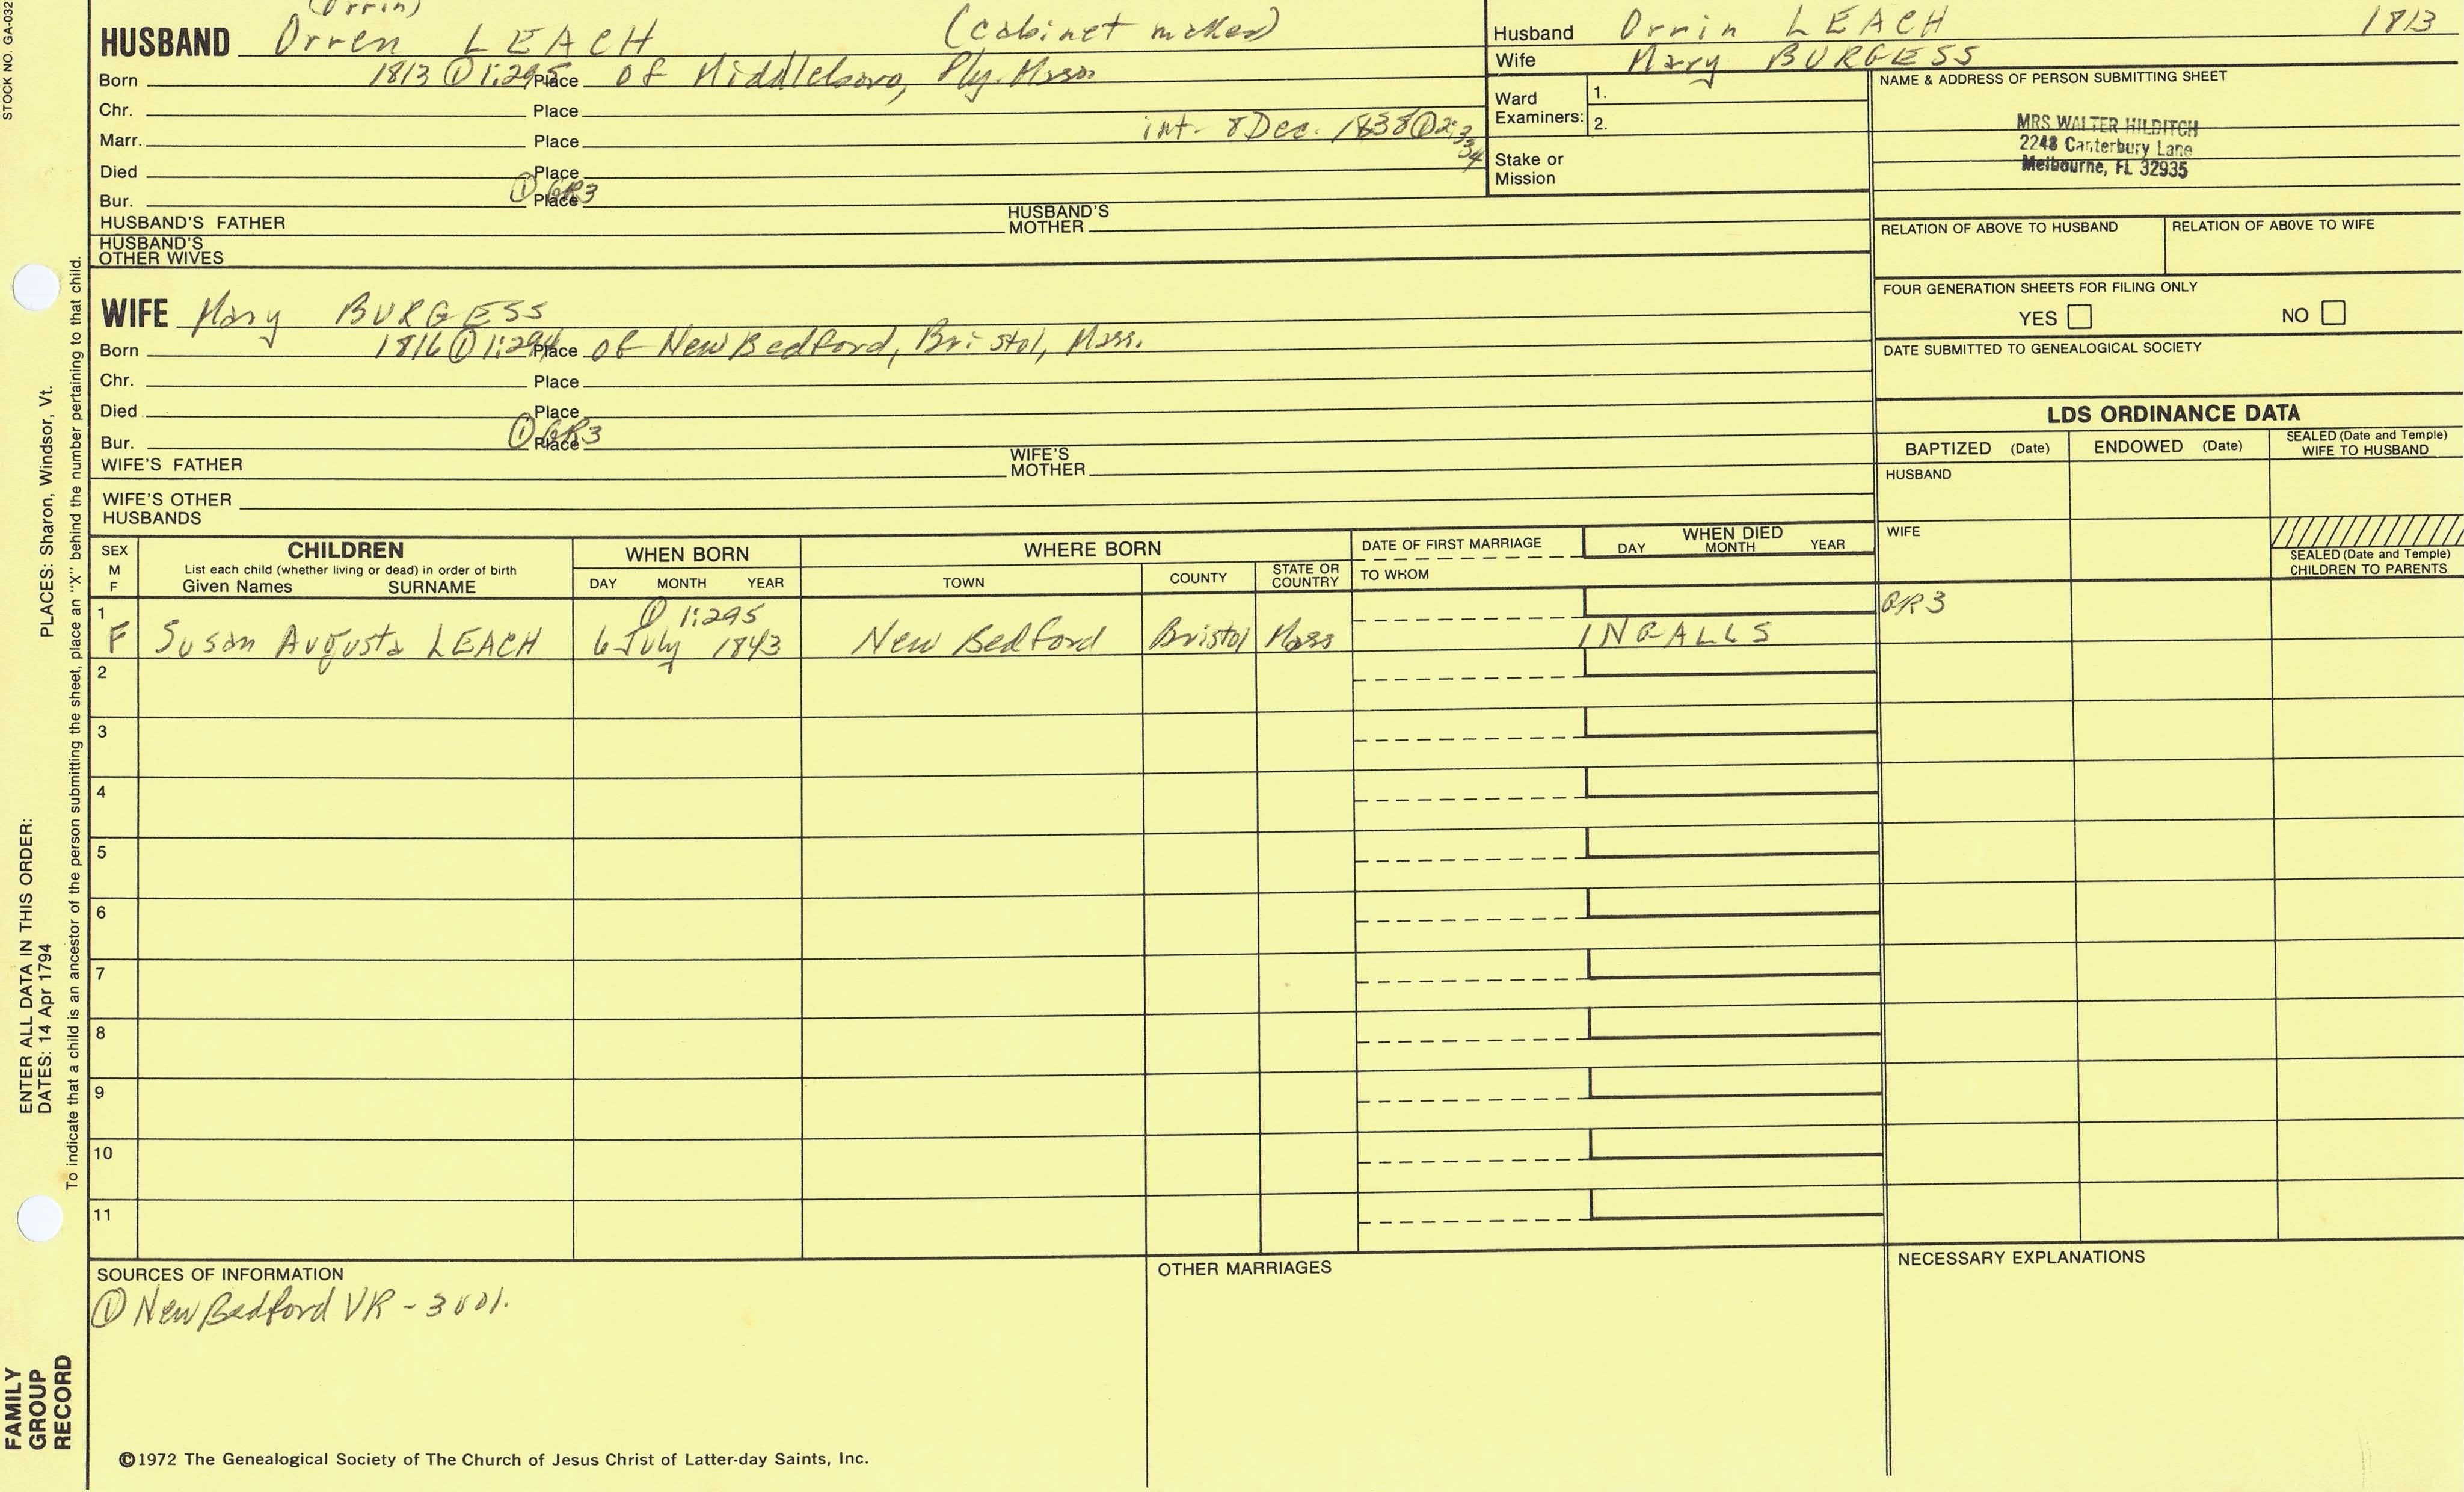 STOCK NO. GA-032
(Orrin)
HUSBAND Orren LEACH (cabinet maker)
Born 1813 ① 1:295 Place of Middleboro, Ply. Mass.
Chr. Place
Marr. Place int- 8 Dec. 1838 ① 2:334
Died Place
Bur. ① GR3 Place
HUSBAND'S FATHER HUSBAND'S MOTHER
HUSBAND'S OTHER WIVES
Husband Orrin LEACH 1813
Wife Mary BURGESS
Ward Examiners: 1.
2.
Stake or Mission
NAME & ADDRESS OF PERSON SUBMITTING SHEET
MRS WALTER HILDITCH
2248 Canterbury Lane
Melbourne, FL 32935
RELATION OF ABOVE TO HUSBAND RELATION OF ABOVE TO WIFE
FOUR GENERATION SHEETS FOR FILING ONLY
YES NO
DATE SUBMITTED TO GENEALOGICAL SOCIETY
WIFE Mary BURGESS
Born 1816 ① 1:294 Place of New Bedford, Bristol, Mass.
Chr. Place
Died Place
Bur. ① GR3 Place
WIFE'S FATHER WIFE'S MOTHER
WIFE'S OTHER HUSBANDS
LDS ORDINANCE DATA
BAPTIZED (Date) ENDOWED (Date) SEALED (Date and Temple) WIFE TO HUSBAND
HUSBAND
WIFE
SEALED (Date and Temple) CHILDREN TO PARENTS
SEX M F
CHILDREN
List each child (whether living or dead) in order of birth
Given Names SURNAME
WHEN BORN
DAY MONTH YEAR
WHERE BORN
TOWN COUNTY STATE OR COUNTRY
DATE OF FIRST MARRIAGE
TO WHOM
WHEN DIED
DAY MONTH YEAR
1 ① 1:295 GR3
F Susan Augusta LEACH 6 July 1843 New Bedford Bristol Mass INGALLS
2
3
4
5
6
7
8
9
10
11
SOURCES OF INFORMATION
① New Bedford VR - 3 vol.
OTHER MARRIAGES
NECESSARY EXPLANATIONS
©1972 The Genealogical Society of The Church of Jesus Christ of Latter-day Saints, Inc.
FAMILY GROUP RECORD
ENTER ALL DATA IN THIS ORDER:
DATES: 14 Apr 1794 PLACES: Sharon, Windsor, Vt.
To indicate that a child is an ancestor of the person submitting the sheet, place an "X" behind the number pertaining to that child.